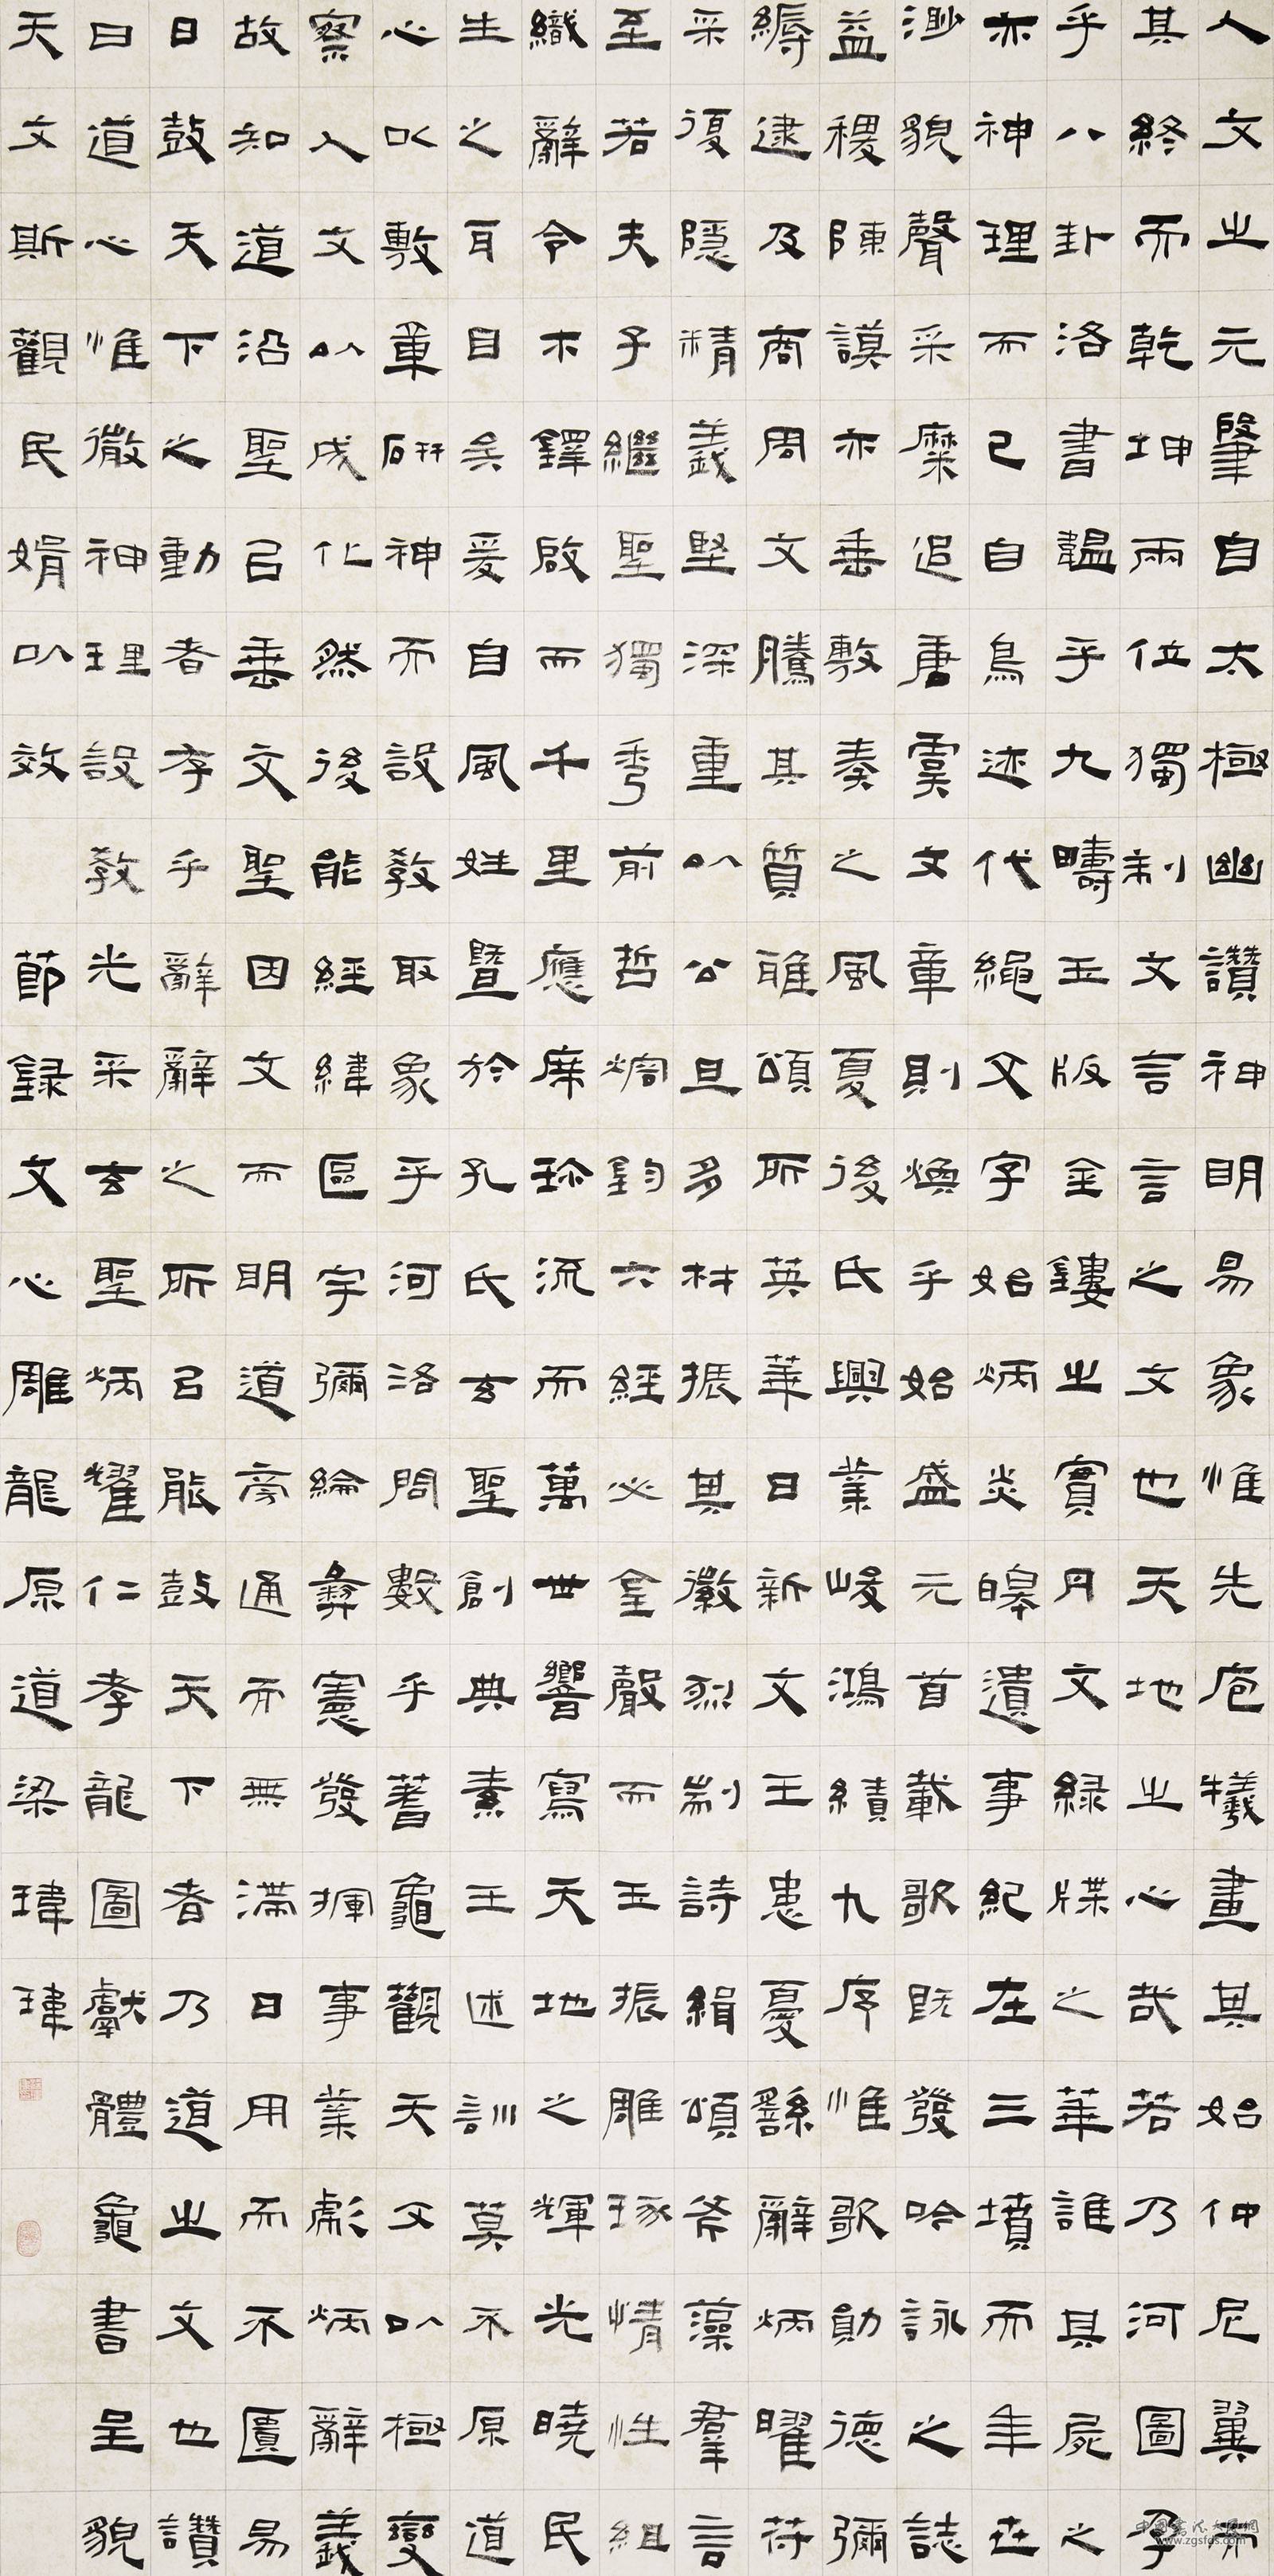 人文之元肇自太極幽讚神明易象惟先庖犧畫其始仲尼翼而
其終而乾坤兩位獨制文言言之文也天地之心哉若乃河圖孕
乎八卦洛書韞乎九疇玉版金鏤之實丹文綠牒之華誰其屍之
亦神理而已自鳥迹代繩文字始炳炎皞遺事紀在三墳而年世
渺貌聲采糜追唐虞文章則煥乎始盛元首載歌既發吟詠之誌
益稷陳謨亦垂敷奏之風夏後氏興業峻鴻績九序惟歌勛德彌
縟逮及商周文騰其質雅頌所英華日新文王患憂繇辭炳曜符
采復隱精義堅深重以公旦多材振其徽烈制詩緝頌斧藻群言
至若夫子繼聖獨秀前哲熔鈞六經必金聲而玉振雕琢情性組
織辭令木鐸啟而千里應席珍流而萬世響寫天地之輝光曉民
生之耳目矣爰自風姓暨於孔氏玄聖創典素王述訓莫不原道
心以敷章研神而設教取象乎河洛問數乎蓍龜觀天文以極變
察人文以成化然後能經緯區宇彌綸彝憲發揮事業彪炳辭義
故知道沿聖以垂文聖因文而明道旁通而無滯日用而不匱易
日鼓天下之動者存乎辭辭之所以能鼓天下者乃道之文也讚
曰道心惟微神理設教光采玄聖炳耀仁孝龍圖獻體龜書呈貌
天文斯觀民娟以效 節錄文心雕龍原道梁瑋瑋
www.zgsfds.com